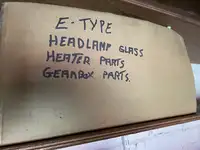 E-TYPE
HEADLAMP GLASS
HEATER PARTS
GEARBOX PARTS.